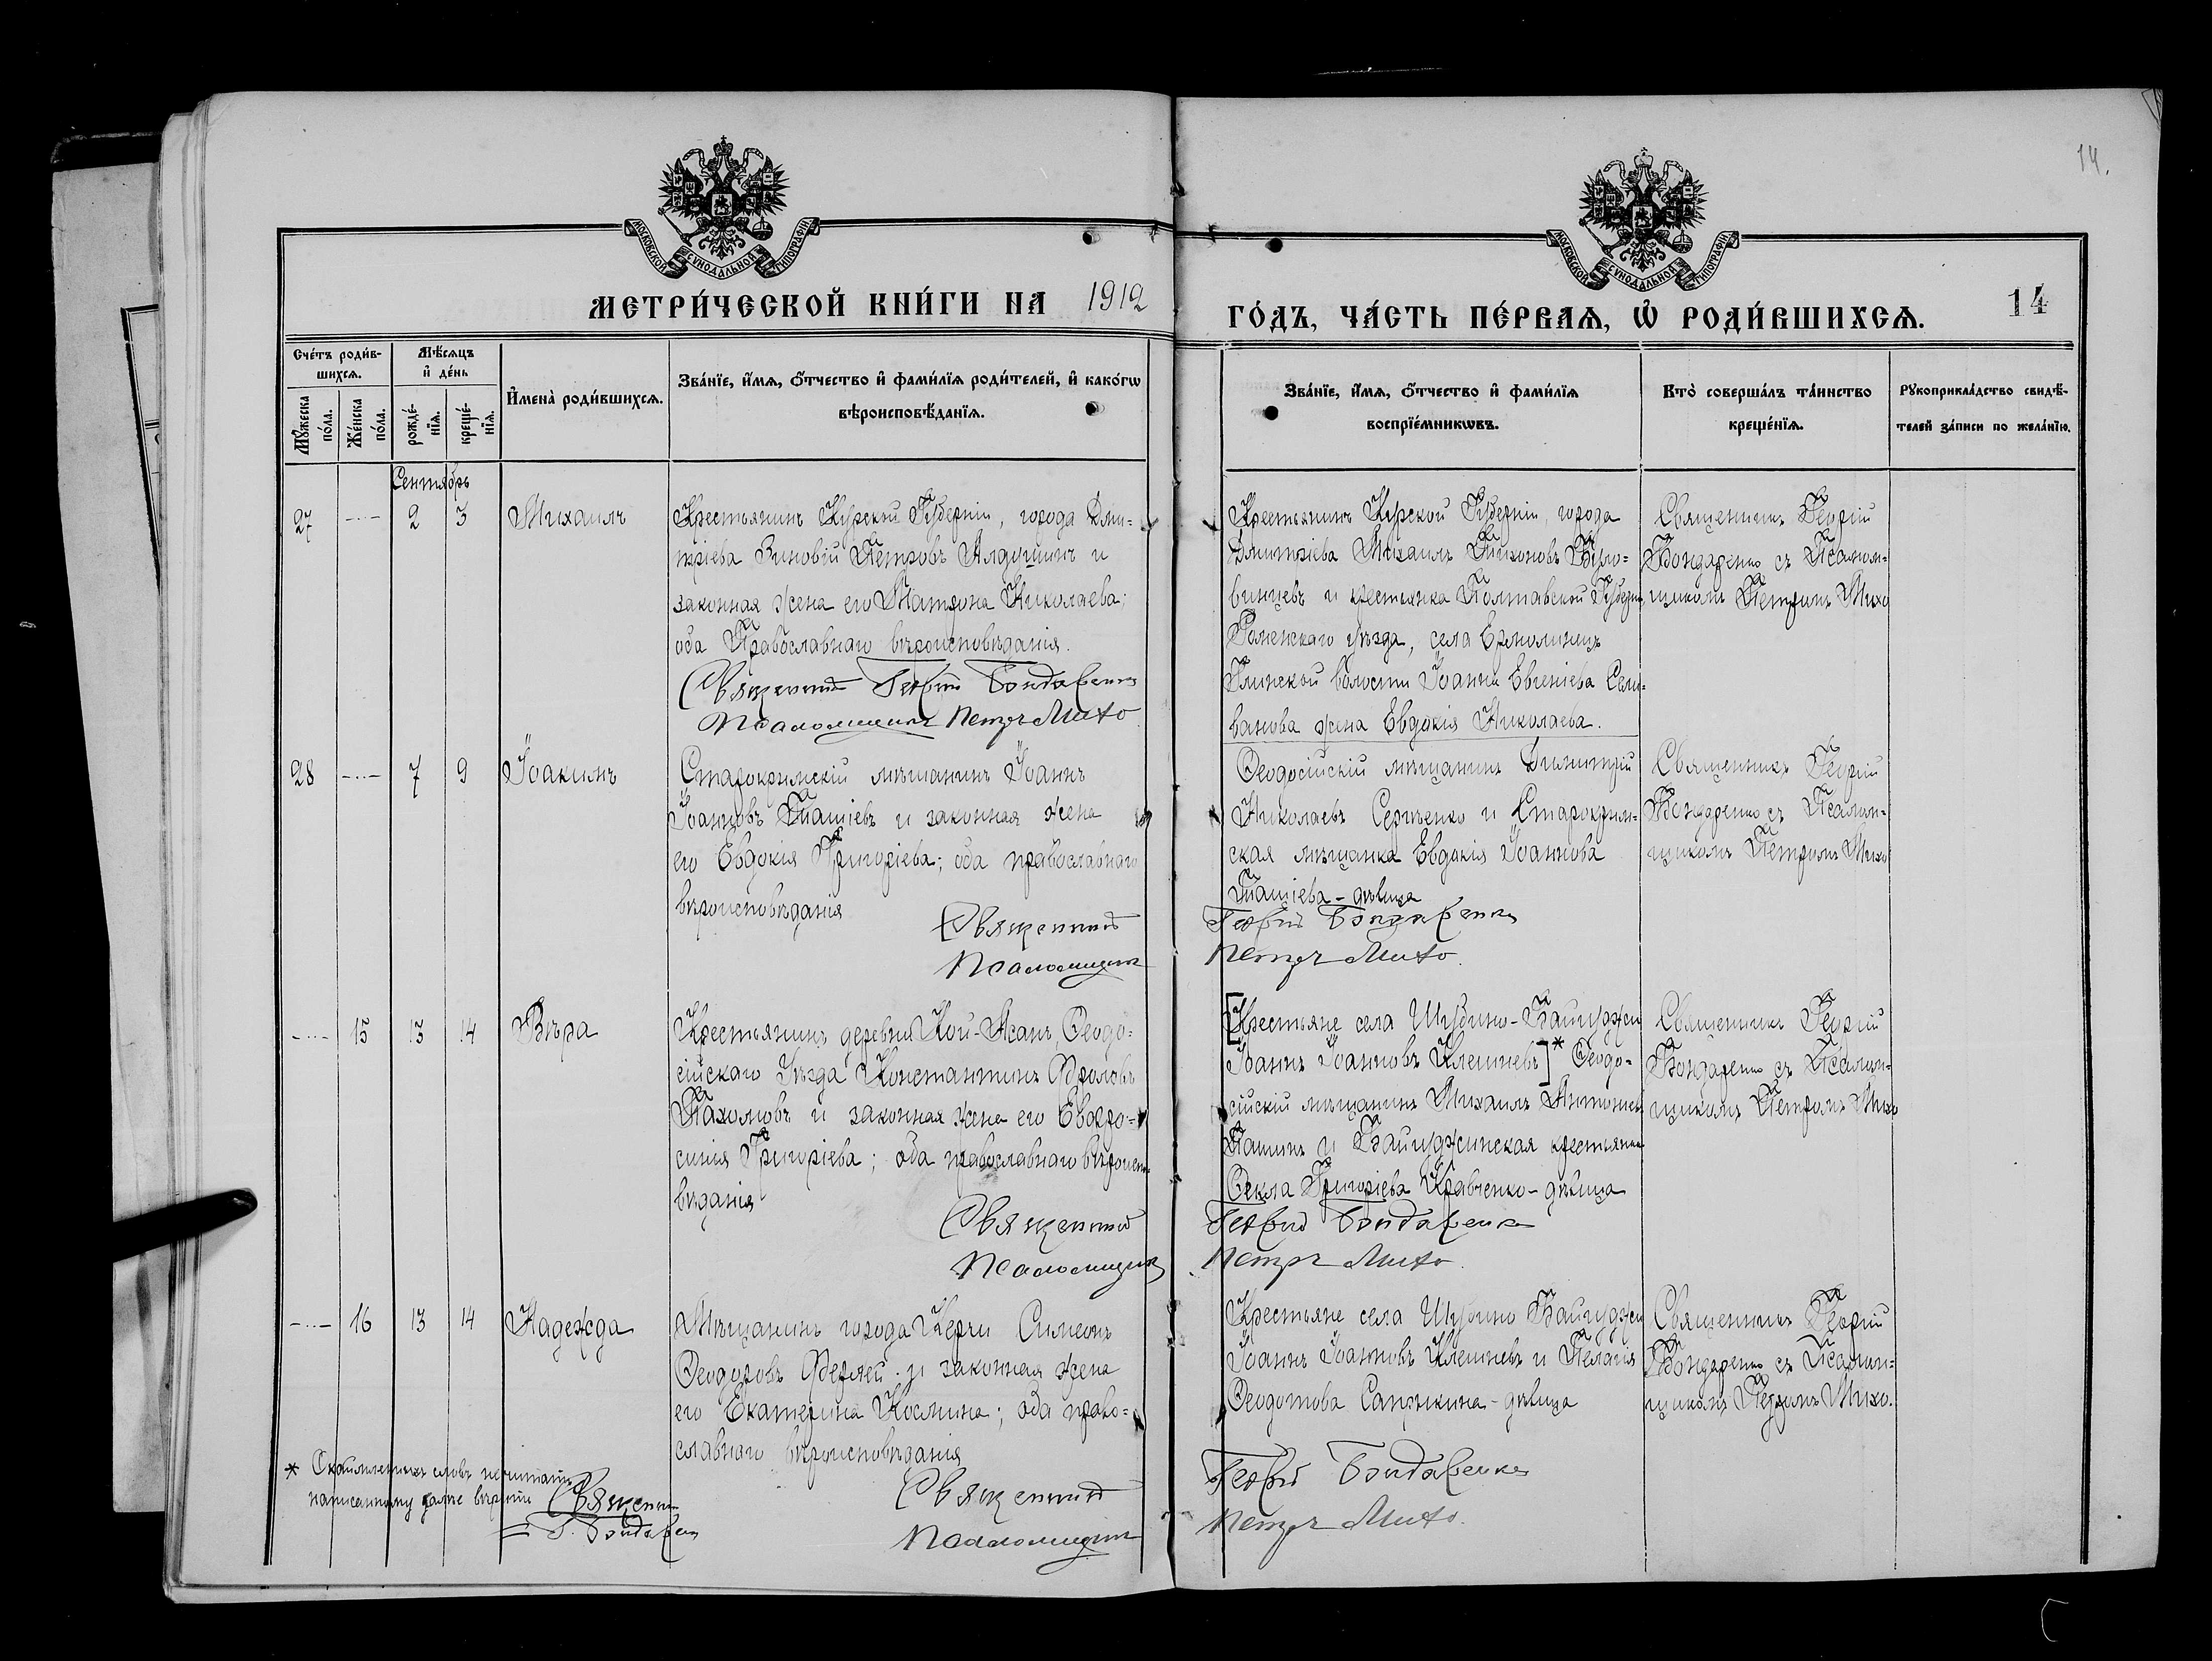 14.
МОСКОВСКОЙ СУНОДАЛЬНОЙ ТИПОГРАФІИ
МОСКОВСКОЙ СУНОДАЛЬНОЙ ТИПОГРАФІИ
МЕТРИ́ЧЕСКОЙ КНИ́ГИ НА 1912
ГО́ДЪ, ЧА́СТЬ ПЕ́РВАЯ, Ѡ РОДИ́ВШИХСЯ.
14
Сче́тъ роди́в-
шихся.
Мѣ́сяцъ
и҆ де́нь
Му́жеска
по́ла.
Же́нска
по́ла.
рожде́-
нія.
креще́-
нія.
И҆мена̀ роди́вшихся.
Зва́ніе, и҆́мя, ѻ҆́тчество и҆ фами́лія роди́телей, и҆ како́гѡ
вѣроисповѣ́данія.
Зва́ніе, и҆́мя, ѻ҆́тчество и҆ фами́лія
воспріе́мникѡвъ.
Кто̀ соверша́лъ та́инство
креще́нія.
Рукоприкла́дство свидѣ́-
телей за́писи по жела́нію.
Сентябрь
27
-----
2
3
Михаилъ
Крестьянинъ Курской Губерніи, города Дми-
тріева Зиновій Петровъ Алдошинъ и
законная жена его Матрона Николаева;
оба Православнаго вѣроисповѣданія.
Священникъ Георгій Бондаренко
Псаломщикъ Петръ Михо
Крестьянинъ Курской Губерніи, города
Дмитріева Михаилъ Тихоновъ
и крестьянка Полтавской Губерніи,
Роменскаго уѣзда, села
Глинской волости Іоанна Евгеніева Сели-
ванова жена Евдокія Николаева.
Священникъ Георгій
Бондаренко съ Псалом-
щикомъ Петромъ Михо
28
-----
7
9
Іоакимъ
Старокрымскій мѣщанинъ Іоаннъ
Іоанновъ Ташіевъ и законная жена
его Евдокія Григоріева; оба православнаго
вѣроисповѣданія
Священникъ
Псаломщикъ
Ѳеодосійскій мѣщанинъ Димитрій
Николаевъ Сергѣенко и Старокрым-
ская мѣщанка Евдокія Іоаннова
Ташіева - дѣвица
Георгій Бондаренко
Петръ Михо.
Священникъ Георгій
Бондаренко съ Псалом-
щикомъ Петромъ Михо
-----
15
13
14
Вѣра
Крестьянинъ деревни Кой-Асанъ, Ѳеодо-
сійскаго Уѣзда Константинъ Фроловъ
Пахомовъ и законная жена его Евфро-
синія Григоріева; оба православнаго вѣроиспо-
вѣданія
Священникъ
Псаломщикъ
[Крестьяне села Шубино-Байгуджи
Іоаннъ Іоанновъ Клешневъ]* Ѳеодо-
сійскій мѣщанинъ Михаилъ Антоновъ
и Байгуджинская крестьянка
Ѳекла Григоріева Кравченко - дѣвица
Георгій Бондаренко
Петръ Михо.
Священникъ Георгій
Бондаренко съ Псалом-
щикомъ Петромъ Михо
-----
16
13
14
Надежда
Мѣщанинъ города Керчи Симеонъ
Ѳеодоровъ и законная жена
его Екатерина Космина; оба право-
славнаго вѣроисповѣданія
Священникъ
Псаломщикъ
Крестьяне села Шубино Байгуджи
Іоаннъ Іоанновъ Клешневъ и Пелагія
Ѳеодотова Сапрыкина - дѣвица
Георгій Бондаренко
Петръ Михо.
Священникъ Георгій
Бондаренко съ Псалом-
щикомъ Петромъ Михо.
* словъ не читать
написанному далѣе вѣрить
Священникъ
Г. Бондаренко